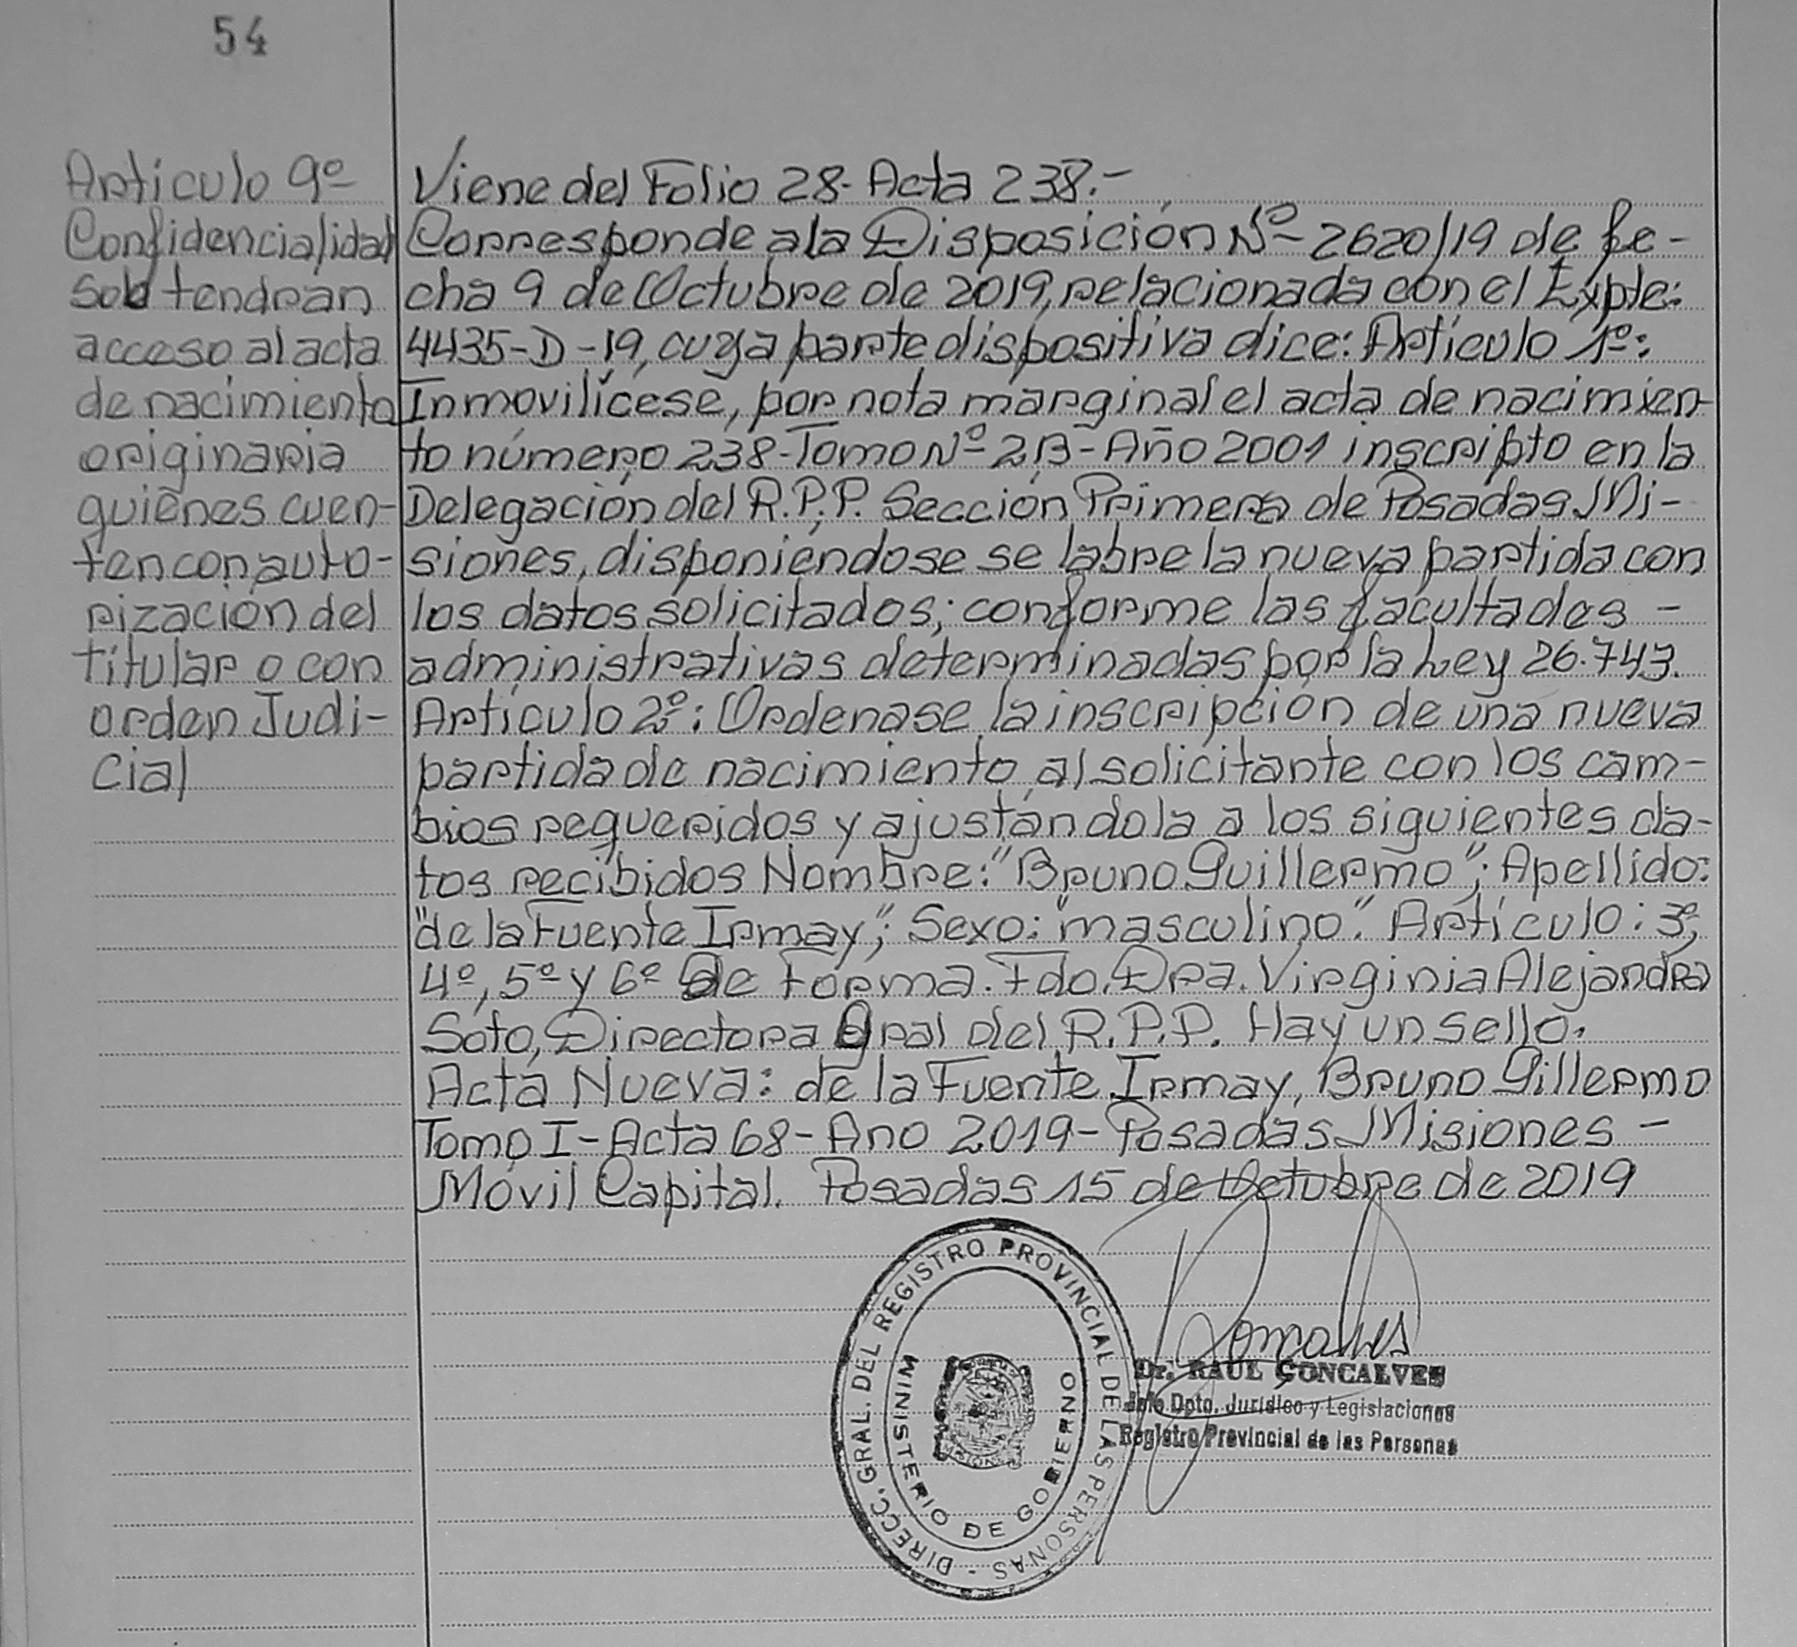 54
Artículo 9º
Confidencialidad
Solo tendran
acceso al acta
de nacimiento
originaria
quiénes cuen-
ten con auto-
rización del
titular o con
orden Judi-
cial
Viene del Folio 28- Acta 238.-
Corresponde a la Disposición Nº 2620/19 de fe-
cha 9 de Octubre de 2019, relacionada con el Expte:
4435-D-19, cuya parte dispositiva dice: Artículo 1º:
Inmovilícese, por nota marginal el acta de nacimien-
to número 238-Tomo Nº 2B-Año 2001 inscripto en la
Delegación del R.P.P. Sección Primera de Posadas Mi-
siones, disponiéndose se labre la nueva partida con
los datos solicitados; conforme las facultades -
administrativas determinadas por la Ley 26.743.
Artículo 2º: Ordenase la inscripción de una nueva
partida de nacimiento al solicitante con los cam-
bios requeridos y ajustándola a los siguientes da-
tos recibidos Nombre: "Bruno Guillermo"; Apellido:
"de la Fuente Irmay"; Sexo: "masculino". Artículo: 3º,
4º, 5º y 6º De Forma. Fdo. Dra. Virginia Alejandra
Soto, Directora Gral del R.P.P. Hay un sello.
Acta Nueva: de la Fuente Irmay, Bruno Gillermo
Tomo I-Acta 68-Ano 2019-Posadas Misiones -
Móvil Capital. Posadas 15 de Octubre de 2019
DIRECC. GRAL. DEL REGISTRO PROVINCIAL DE LAS PERSONAS -
MINISTERIO DE GOBIERNO
Goncalves
Dr. RAUL GONCALVES
Jefe Dpto. Jurídico y Legislaciones
Registro Provincial de las Personas